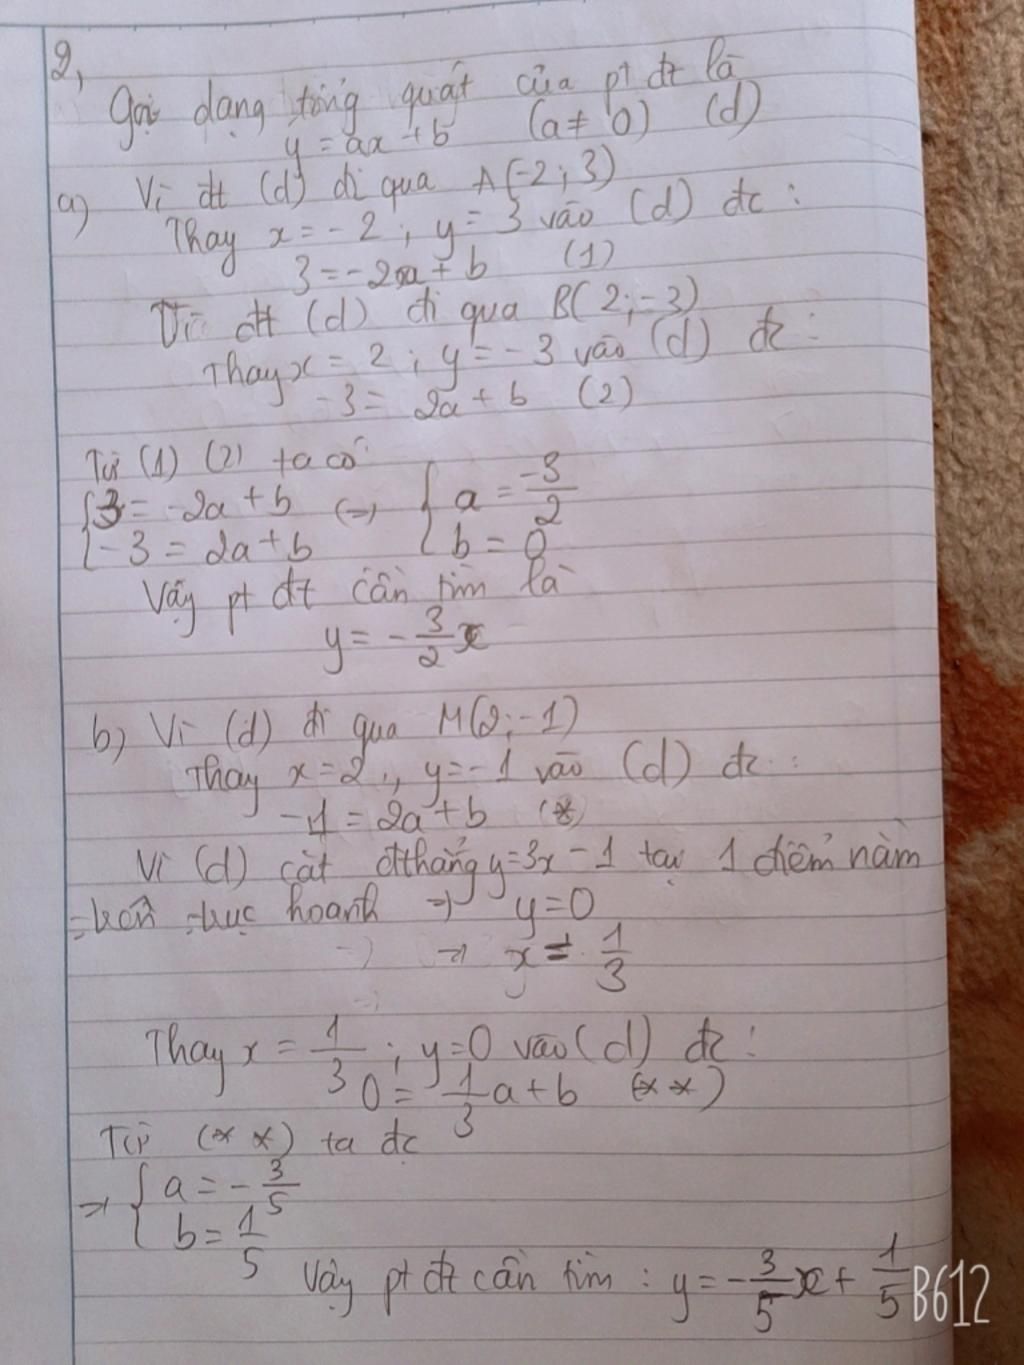 2,
Gọi dạng tổng quát của pt đt là
y = ax + b (a ≠ 0) (d)
a) Vì đt (d) đi qua A(-2; 3)
Thay x = -2; y = 3 vào (d) đc:
3 = -2a + b (1)
Vì đt (d) đi qua B(2; -3)
Thay x = 2; y = -3 vào (d) đc:
-3 = 2a + b (2)
Từ (1) (2) ta có
{3 = -2a + b (=) { a = -3/2
{-3 = 2a + b { b = 0
Vậy pt đt cần tìm là
y = -3/2 x
b) Vì (d) đi qua M(2; -1)
Thay x = 2, y = -1 vào (d) đc:
-1 = 2a + b (*)
Vì (d) cắt đthẳng y = 3x - 1 tại 1 điểm nằm
trên trục hoành => y = 0
=> x = 1/3
Thay x = 1/3; y = 0 vào (d) đc:
0 = 1/3 a + b (**)
Từ (* *) ta đc
=> { a = -3/5
{ b = 1/5
Vậy pt đt cần tìm: y = -3/5 x + 1/5
B612